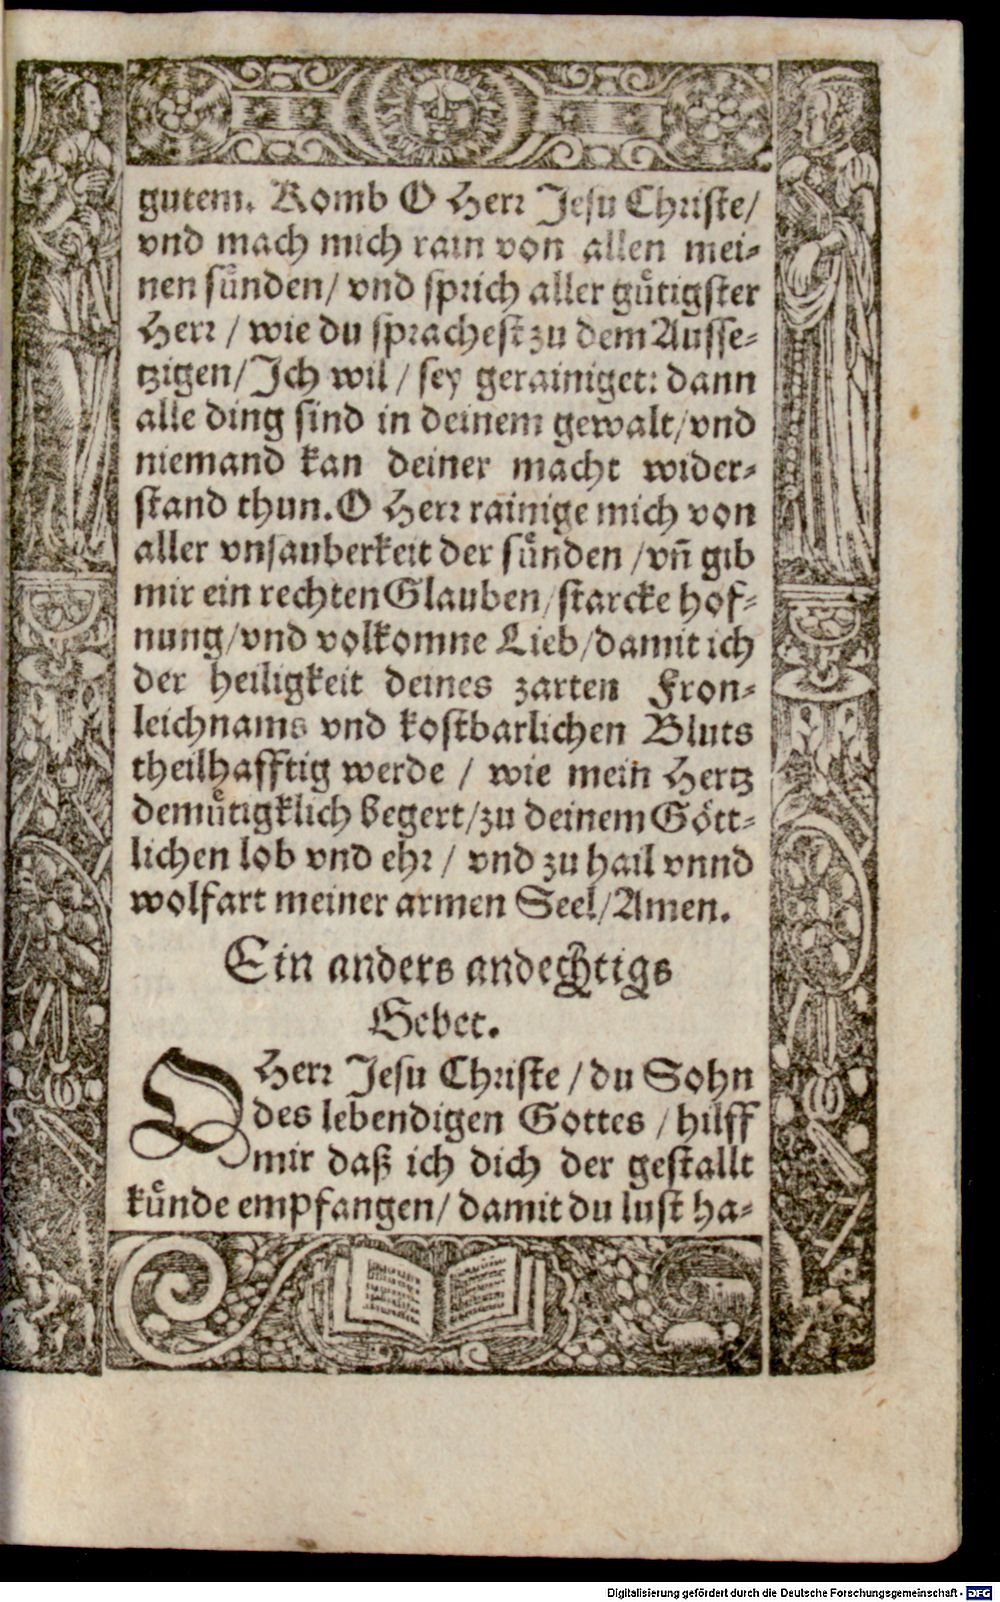 gutem. Komb O Herr Jesu Christe/
vnd mach mich rain von allen mei-
nen suͤnden/ vnd sprich aller guͤtigster
Herr / wie du sprachest zu dem Ausse-
tzigen/ Ich wil / sey gerainiget: dann
alle ding sind in deinem gewalt/ vnd
niemand kan deiner macht wider-
stand thun. O Herr rainige mich von
aller vnsauberkeit der suͤnden / vn̄ gib
mir ein rechten Glauben/ starcke hof-
nung/ vnd volkomne Lieb/ damit ich
der heiligkeit deines zarten Fron-
leichnams vnd kostbarlichen Bluts
theilhafftig werde / wie mein Hertz
demuͤtigklich begert/ zu deinem Goͤtt-
lichen lob vnd ehr / vnd zu hail vnnd
wolfart meiner armen Seel/ Amen.
Ein anders andechtigs
Gebet.
O Herr Jesu Christe / du Sohn
des lebendigen Gottes / hilff
mir daß ich dich der gestallt
kuͤnde empfangen/ damit du lust ha-
Digitalisierung gefördert durch die Deutsche Forschungsgemeinschaft - DFG